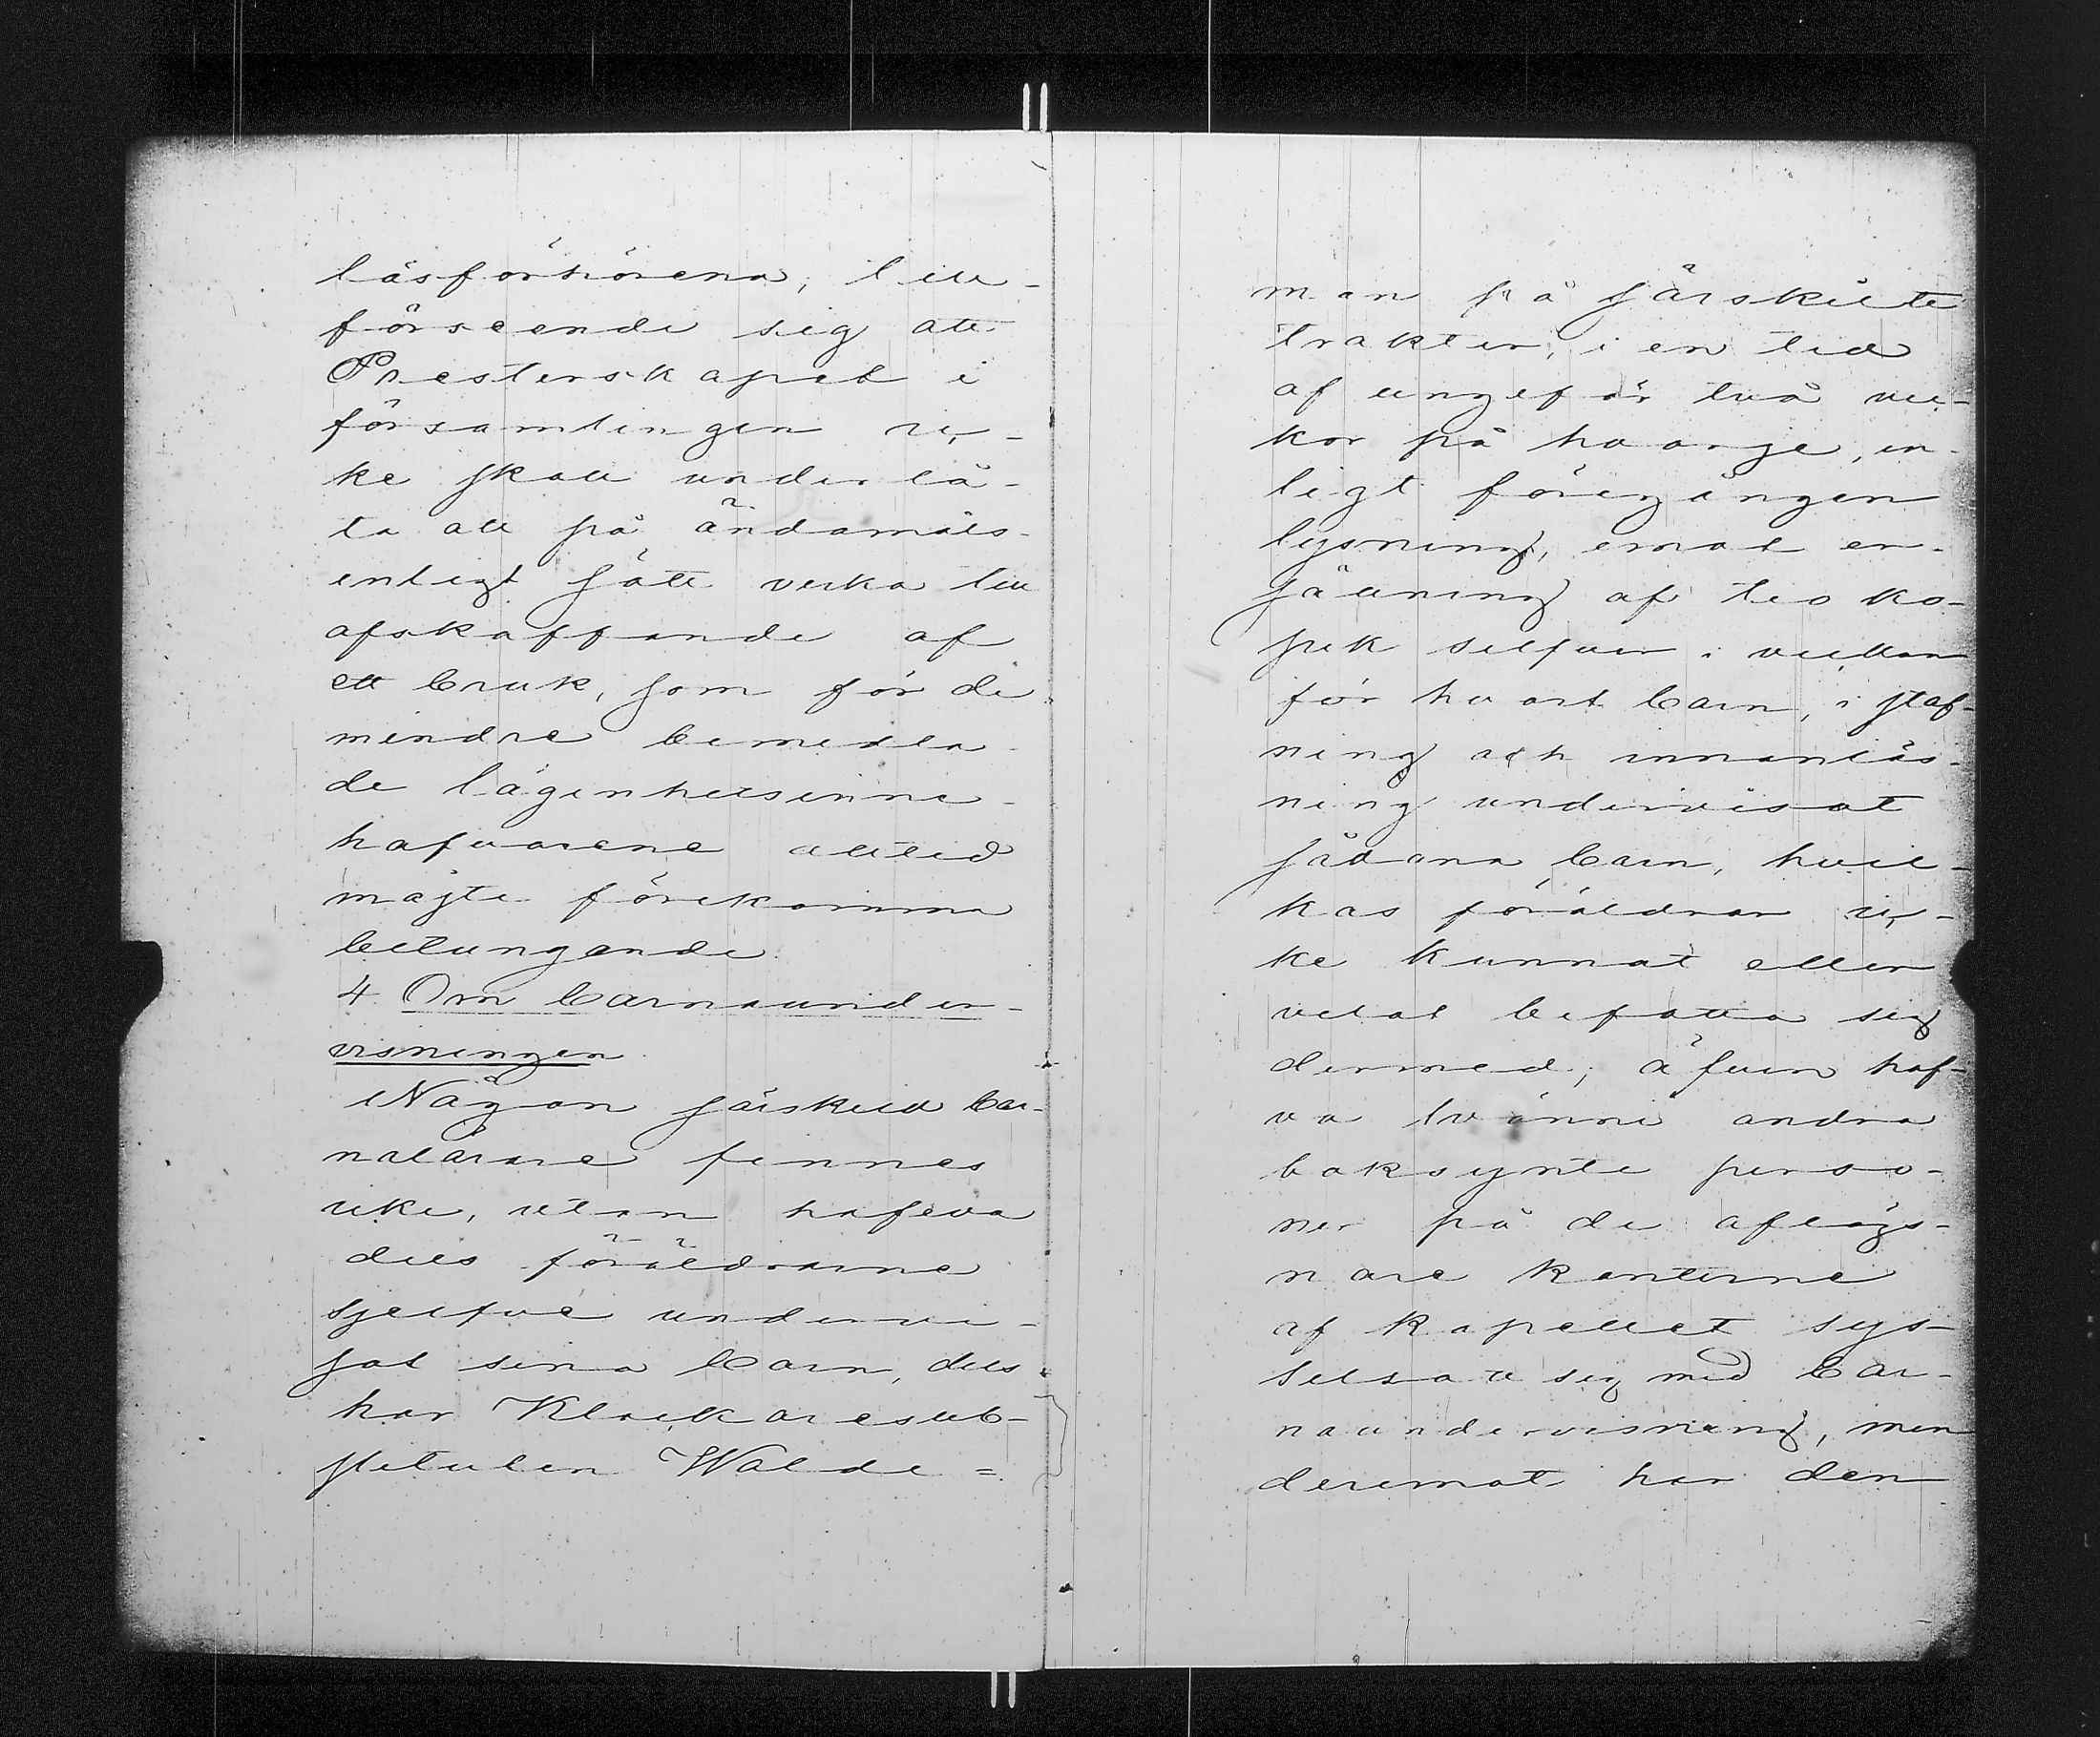 läsförhören, till-
förseende sig att
Presterskapet i
församlingen ic-
ke skall underlå-
ta att på ändamåls-
enligt sätt verka till
afskaffande af
ett bruk, som för de
mindre bemedla-
de lägenhetsinne-
hafvarene alltid
måste förekomma
betungande.
4 Om barnaunder-
visningen.
Någon särskild bar-
nalärare finnes
icke, utan hafva
dels föräldrarne
sjelfve undervi-
sat sina barn, dels
har Klockaresub-
stituten Walde=
man på särskilte
trakter, i en tid
af ungefär två vec-
kor på hvarje, en-
ligt föregången
lysning, emot er-
sättning af tio ko-
pek silfver i veckan
för hvart barn, i staf-
ning och innanläs-
ning undervisat
sådana barn, hvil-
kas föräldrar ic-
ke kunnat eller
velat befatta sig
dermed; äfven haf-
va tvänne andra
boksynte perso-
ner på de aflägs-
nare kanterne
af kapellet sys-
selsatt sig med bar-
naundervisning, men
deremot har den